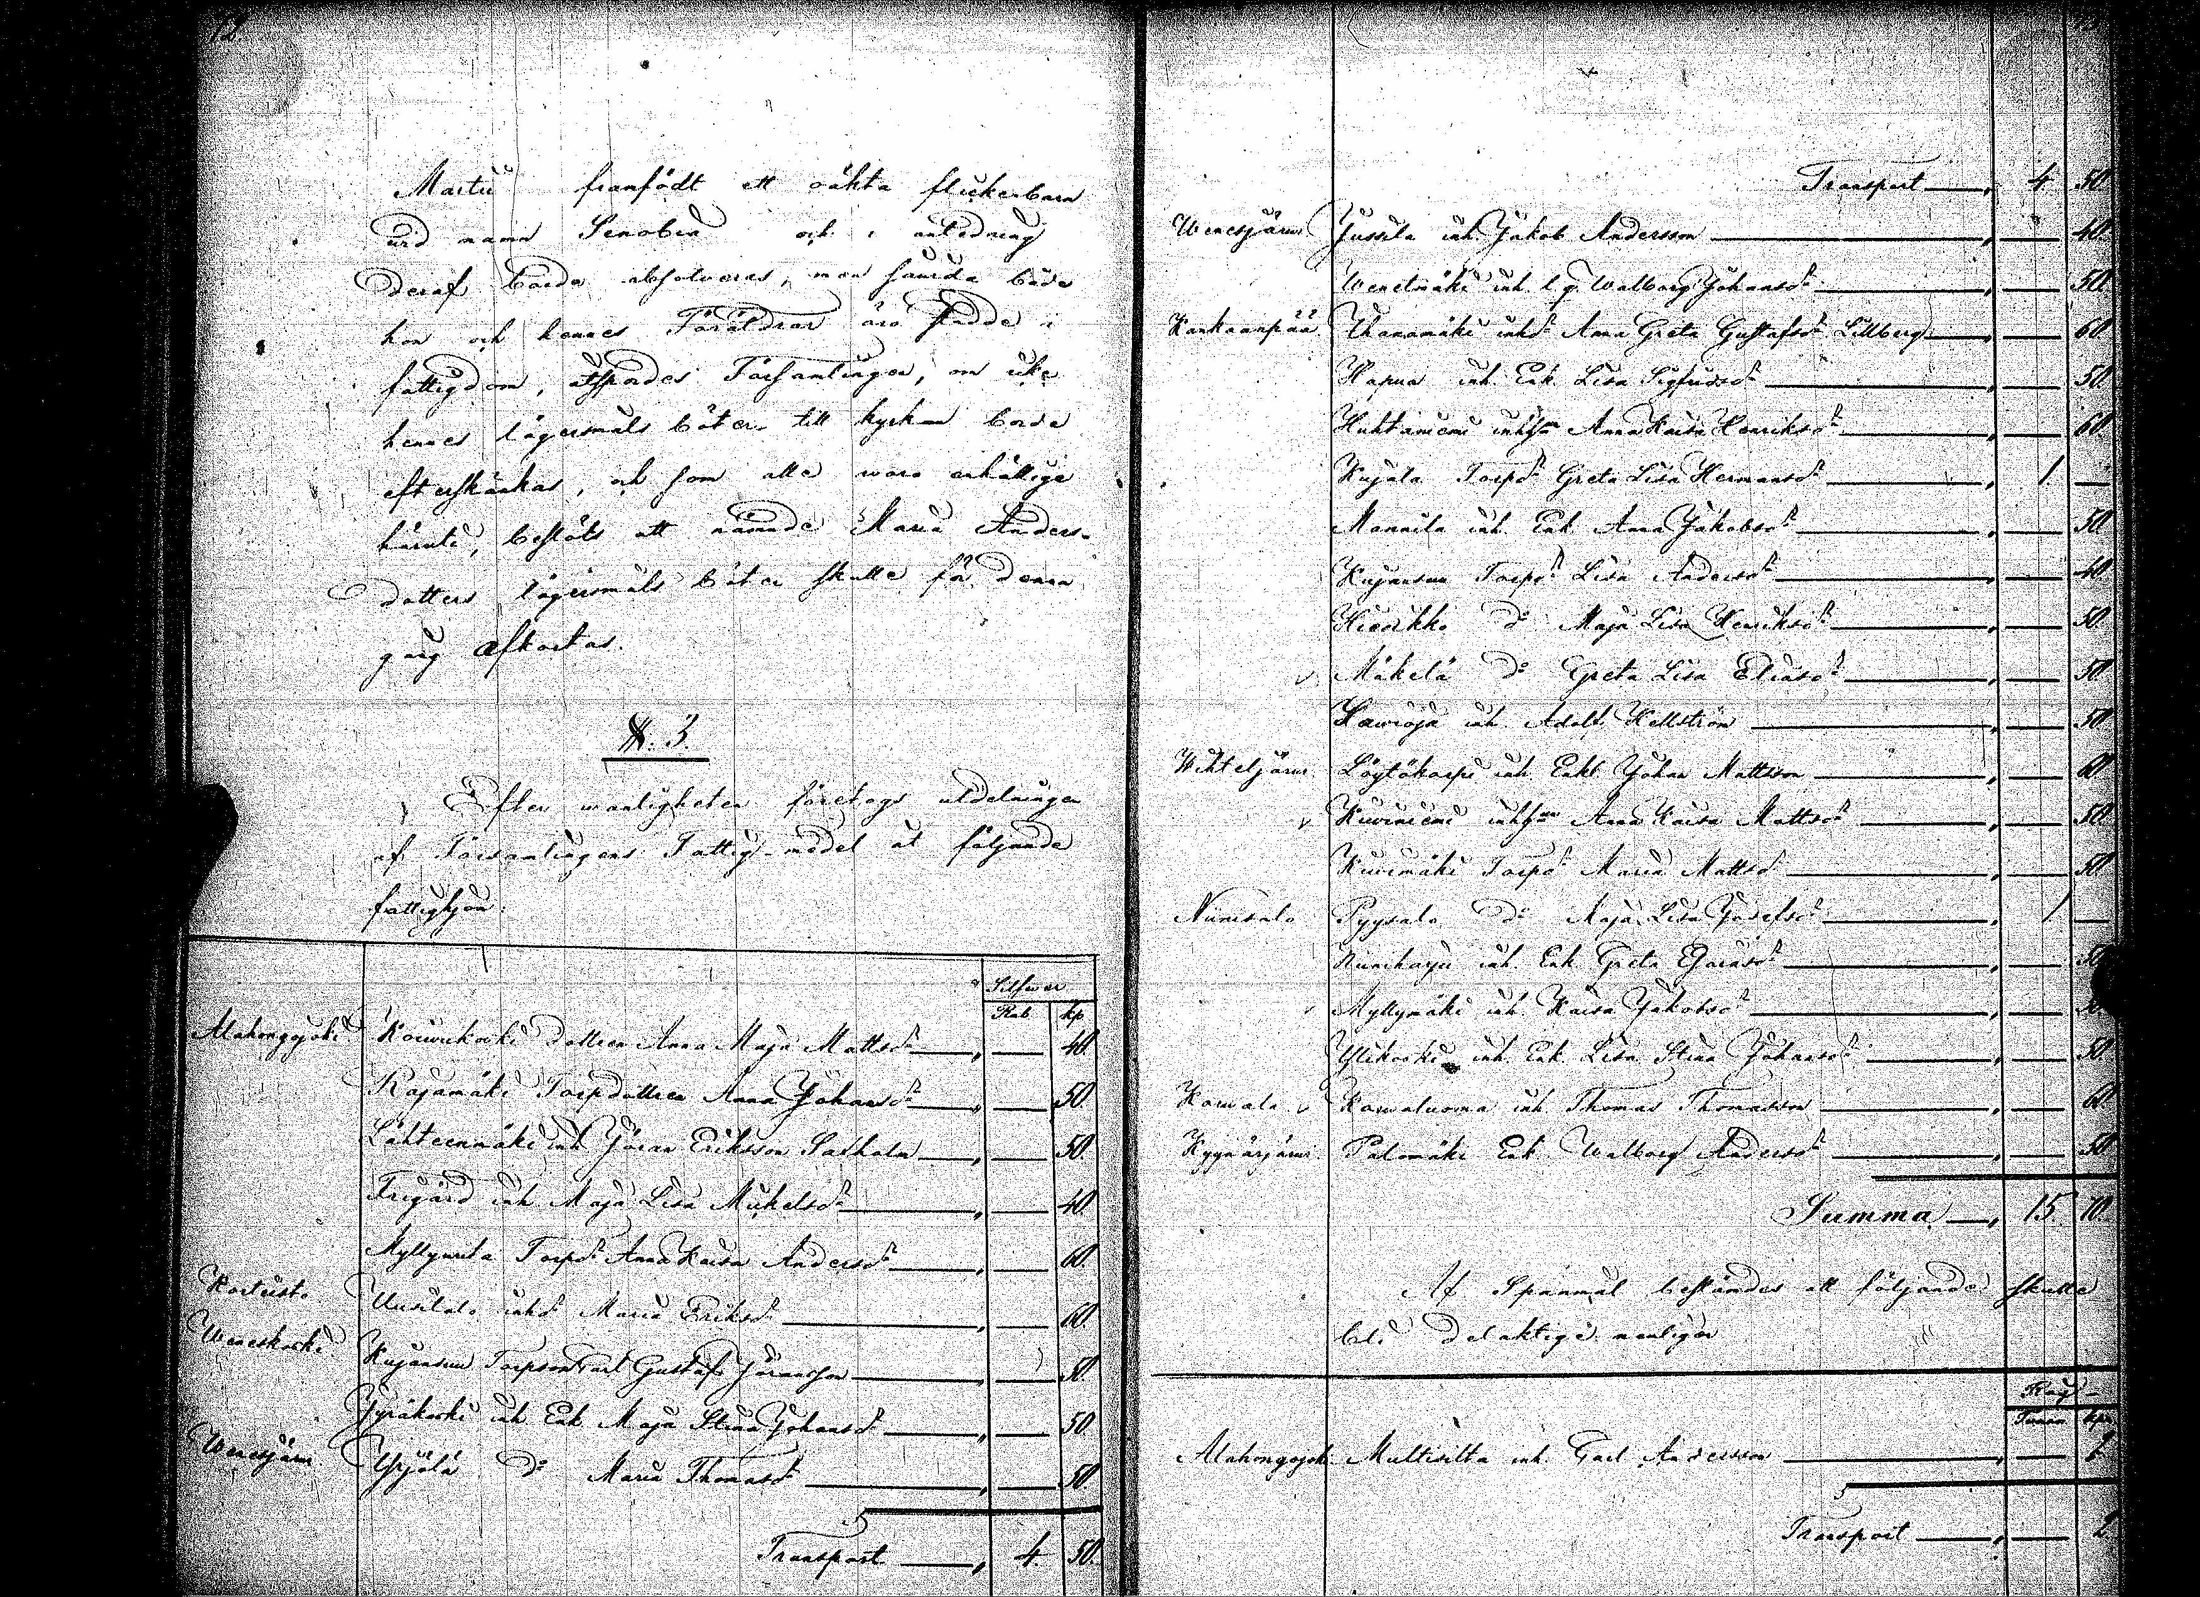 12.
Martii framfödt ett oäkta flickebarn
vid namn Senobia och i anledning
deraf borde absolveras, men såsom både
hon och hennes Föräldrar äro stadde i
fattigdom, åtspordes Församlingen, om icke
hennes lägersmåls böter till kyrkan borde
efterskänkas, och som alle woro enhällige
häruti, beslöts att nämnde Maria Anders-
dotters lägersmåls böter skulle för denna
gång afkortas.
§. 3.
Efter wanligheten företogs utdelningen
af Församlingens Fattig-medel åt följande
fattighjon:
Silfwer
Rub kp
Alahongojoki Koiwukoski dottren Anna Maja Mattsdr " — 40.
Rajamäki Torpdottren Anna Johansdr " — 50.
Lähteenmäki inh Jöran Eriksson Saxholm " — 50.
Frigård inh Maja Lisa Mickelsdr " — 40.
Myllymila Torpdr Anna Kaisa Andersdr " — 60.
Kortisto Uusitalo inhdr Maria Eriksdr " — 60.
Weneskoski Kujansuu Torpson Carl Gustaf Göransson " — 50
Jyräkoski inh Enk Maja Stina Johansdr " — 50
Wenesjärwi Yrjölä do Maria Thomasdr " — 50.
Transport " 4. 50.
Transport " 4 50.
Wenesjärwi Jussila inh. Jakob Andersson " — 40.
Wenetmäki inh. l. g. Walborg Johansdr " — 50.
Kankaanpää Uhanamäki inhdr Anna Greta Gustafsdr Lillberg " — 60
Hapua inh. Enk. Lisa Sigfridsdr " — 50.
Huhtaniemi inhs:n Anna Kaisa Henriksdr " — 60.
Kujala Torpdr Greta Lisa Hermansdr " 1. —
Mannila inh. Enk. Anna Jakobsdr " — 50
Kujansuu Torpdr Lisa Andersdr " — 40.
Hietikko do Maja Lisa Henriksdr " — 50.
Mäkelä do Greta Lisa Eliasdr " — 50
Lawioja inh. Adolf Hellström " — 50.
Wihteljärwi Löytökorpi inh. Enkl Johan Mattsson " — 60
Kiviniemi inhs:n Anna Kaisa Mattsdr " — 50
Kivimäki Torpdr Maria Mattsdr " — 50
Niinisalo Pyysalo do Maja Lisa Josefsdr " 1 —
Kuniharju inh. Enk Greta Göransdr " — 50
Myllymäki inh. Kaisa Jakobsdr " —
Ylikoski inh. Enk. Lisa Stina Johansdr " — 50.
Korwala Korwaluoma inh. Thomas Thomasson " — 60
Kyynärjärwi Palomäki Enk. Walborg Andersdr " — 50
Summa " 15. 10.
Af Spanmål bestämdes att följande skulle
bli delaktige nemligen
Råg
Tunna kpr
Alahongojoki Multisilta inh. Carl Andersson " — 2.
Transport " — 2